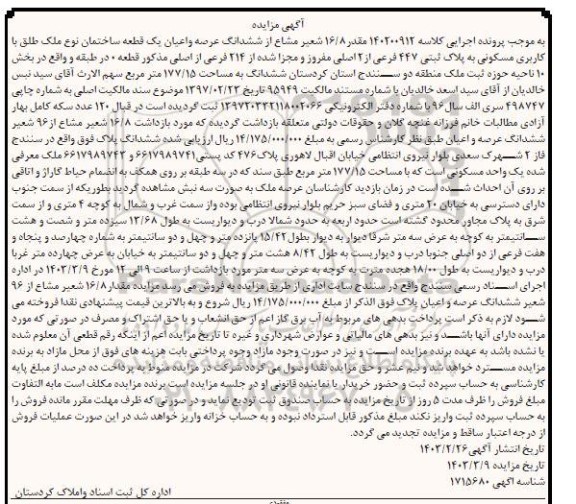 آگهی مزایده
به موجب پرونده اجرایی کلاسه ۱۴۰۲۰۰۹۱۲ مقدر ۱۶/۸ شعیر مشاع از ششدانگ عرصه واعیان یک قطعه ساختمان نوع ملک طلق با
کاربری مسکونی به پلاک ثبتی ۴۴۷ فرعی از ۲ اصلی مفروز و مجزا شده از ۲۱۴ فرعی از اصلی مذکور قطعه ۰۰ در طبقه و واقع در بخش
۱۰ ناحیه حوزه ثبت ملک منطقه دو سنندج استان کردستان ششدانگ به مساحت ۱۷۷/۱۵ متر مربع سهم الارث آقای سید نبس
خالدیان از آقای سید اسعد خالدیان با شماره مستند مالکیت ۹۵۹۴۹ تاریخ ۱۳۹۷/۰۲/۲۳ موضوع سند مالکیت اصلی به شماره چاپی
۴۹۸۷۴۷ سری الف سال ۹۶ با شماره دفتر الکترونیکی ۱۳۹۷۲۰۳۳۲۱۱۸۰۰۲۰۶۶ ثبت گردیده است در قبال ۱۲۰ عدد سکه کامل بهار
آزادی مطالبات خانم فرزانه غنچه گلان و حقوقات دولتی متعلقه بازداشت گردیده که مورد بازداشت ۱۶/۸ شعیر مشاع از ۹۶ شعیر
ششدانگ عرصه و اعیان طبق نظر کارشناس رسمی به مبلغ ۱۴/۱۷۵/۰۰۰/۰۰۰ ریال ارزیابی شده ششدانگ پلاک فوق واقع در سنندج
فاز ۲ شهرک سعدی بلوار نیروی انتظامی خیابان اقبال لاهوری پلاک ۴۷۶ کد پستی ۶۶۱۷۹۸۹۷۴۱ و ۶۶۱۷۹۸۹۷۴۳ ملک معرفی
شده یک واحد مسکونی است که با مساحت ۱۷۷/۱۵ متر مربع طبق سند که در سه طبقه بر روی همکف به انضمام حیاط گاراژ و اتاقی
بر روی آن احداث شده است در زمان بازدید کارشناسان عرصه ملک به صورت سه نبش مشاهده گردید بطوریکه از سمت جنوب
دارای دسترسی به خیابان ۲۰ متری و فضای سبز حریم بلوار نیروی انتظامی بوده واز سمت غرب و شمال به کوچه ۴ متری و از سمت
شرق به پلاک مجاور محدود گشته است حدود اربعه به حدود شمالا درب و دیواریست به طول ۱۳/۶۸ سیزده متر و شصت و هشت
سانتیمتر به کوچه به عرض سه متر شرقا دیوار به دیوار بطول ۱۵/۴۲ پانزده متر و چهل و دو سانتیمتر به شماره چهارصد و پنجاه و
هفت فرعی از دو اصلی جنوبا درب و دیواریست به طول ۸/۴۲ هشت متر و چهل و دو سانتیمتر به خیابان به عرض چهارده متر غربا
درب و دیواریست به طول ۱۸/۰۰ هجده متر به کوچه به عرض سه متر مورد بازداشت از ساعت ۹ الی ۱۲ مورخ ۱۴۰۳/۳/۹ در اداره
اجرای اسناد رسمی سنندج واقع در سنندج سایت اداری از طریق مزایده به فروش می رسد مزایده مقدار ۱۶/۸ شعیر مشاع از ۹۶
شعیر ششدانگ عرصه و اعیان پلاک فوق الذکر از مبلغ ۱۴/۱۷۵/۰۰۰/۰۰۰ ریال شروع و به بالاترین قیمت پیشنهادی نقدا فروخته می
شود لازم به ذکر است پرداخت بدهی های مربوط به آب برق گاز اعم از حق انشعاب و یا حق اشتراک و مصرف در صورتی که مورد
مزایده دارای آنها باشد و نیز بدهی های مالیاتی و عوارض شهرداری و غیره تا تاریخ مزایده اعم از اینکه رقم قطعی آن معلوم شده
یا نشده باشد به عهده برنده مزایده است و نیز در صورت وجود مازاد وجوه پرداختی بابت هزینه های فوق از محل مازاد به برنده
مزایده مسترد خواهد شد و نیم عشر و حق مزایده نقدا وصول می گردد شرکت در مزایده منوط به پرداخت ده درصد از مبلغ پایه
کارشناسی به حساب سپرده ثبت و حضور خریدار یا نماینده قانونی او در جلسه مزایده است برنده مزایده مکلف است مابه التفاوت
مبلغ فروش را ظرف مدت ۵ روز از تاریخ مزایده به حساب صندوق ثبت تودیع نماید و در صورتی که ظرف مهلت مقرر مانده فروش را
به حساب سپرده ثبت واریز نکند مبلغ مذکور قابل استرداد نبوده و به حساب خزانه واریز خواهد شد در این صورت عملیات فروش
از درجه اعتبار ساقط و مزایده تجدید می گردد.
تاریخ انتشار آگهی ۱۴۰۳/۲/۲۶
تاریخ مزایده ۱۴۰۳/۳/۹
شناسه آگهی ۱۷۱۵۶۸۰
اداره کل ثبت اسناد واملاک کردستان